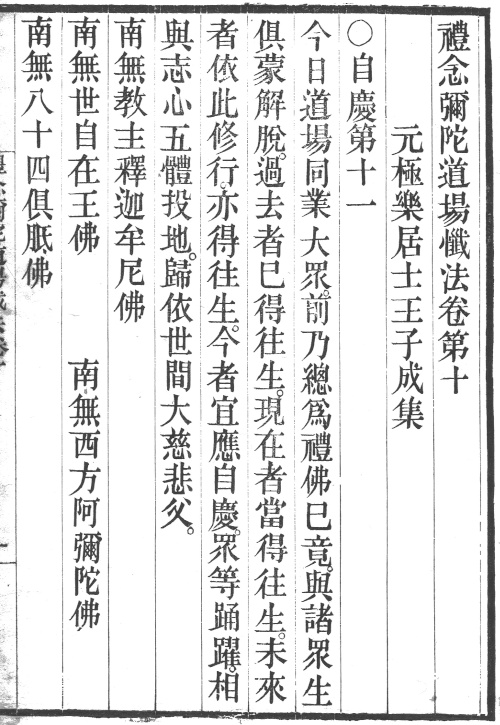 禮念彌陀道場懺法卷第十
元極樂居士王子成集
○自慶第十一
今日道場同業大眾。前乃總爲禮佛已竟。與諸眾生
俱蒙解脫。過去者已得往生。現在者當得往生。未來
者依此修行。亦得往生。今者宜應自慶。眾等踊躍。相
與志心五體投地。歸依世間大慈悲父。
南無教主釋迦牟尼佛
南無世自在王佛　　南無西方阿彌陀佛
南無八十四俱胝佛